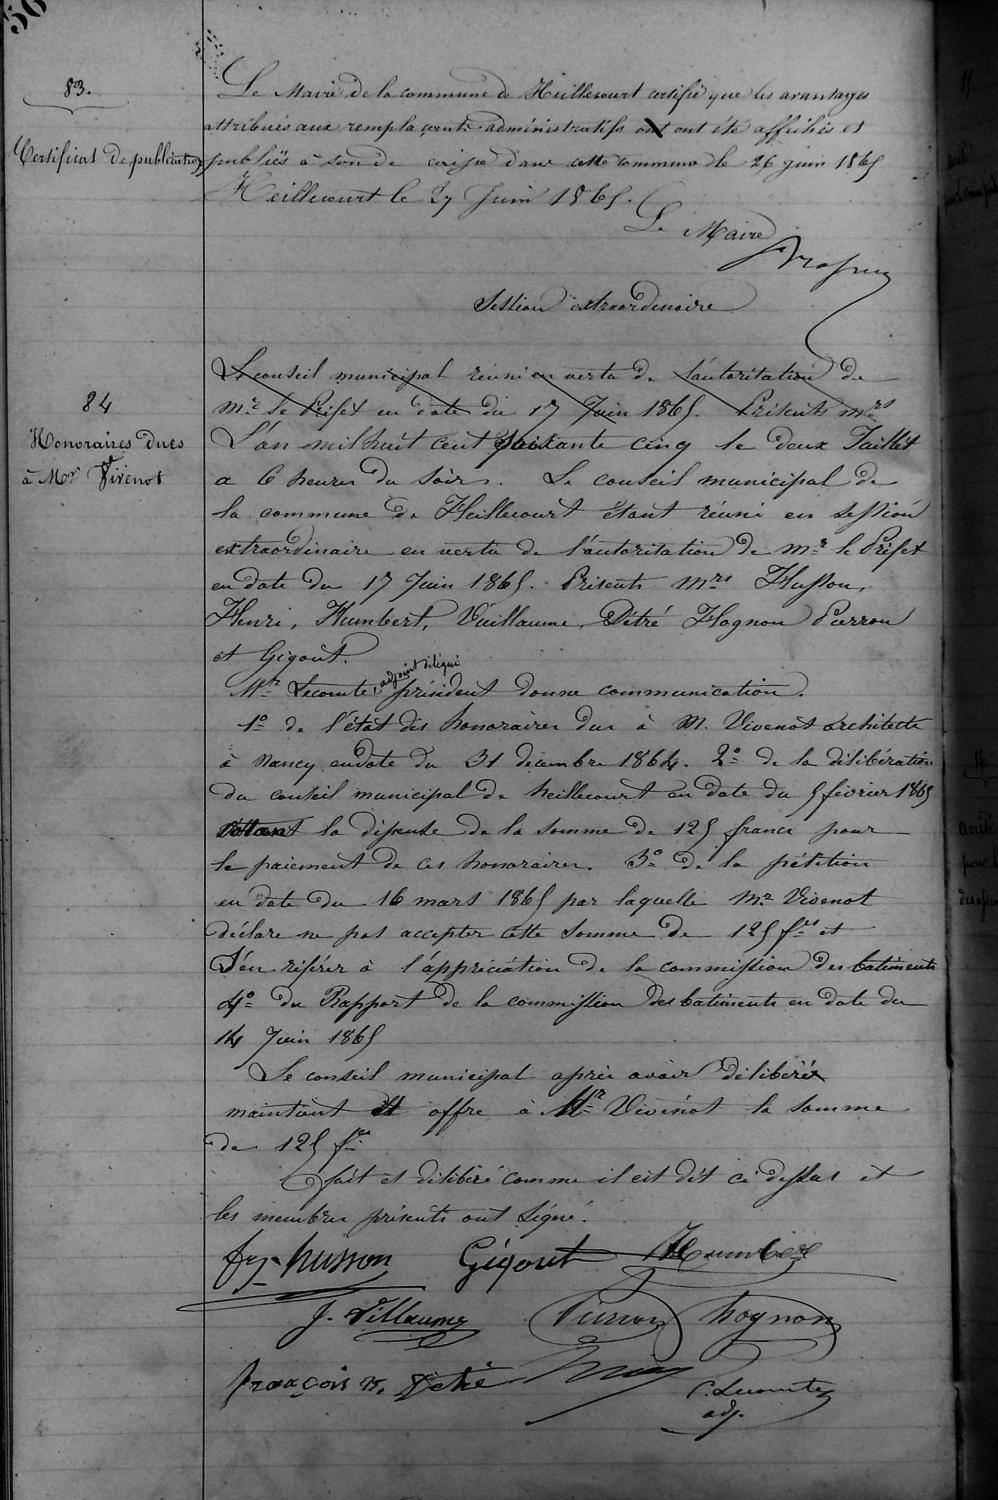 56
83.
Certificat de publication
Le Maire de la commune de Heillecourt certifie que les avantages
attribués aux remplacants administratifs ont ont été affichés et
publiés à son de caisse dans cette commune le 26 juin 1865
Heillecourt le 27 Juin 1865.
Le Maire
Session extraordinaire
Le conseil municipal réuni en vertu de l'autoritation de
mr. le Préfet en date du 17 Juin 1865. Présents mrs
84
Honoraires dues
à Mor Vivenot
L'an mil huit cent soixante cinq le deux Juillet
a 6 heures du soir. Le conseil municipal de
la commune de Heillecourt étant réuni en session
extraordinaire en vertu de l'autoritation de mr le Préfet
en date du 17 Juin 1865. Présents Mrs Husson,
Henri, Humbert, Vuillaume, Détré Hognon Pierron
et Gigout.
Mr Lecomte, adjoint délégué président donne communication.
1o de l'état des honoraires dus à M. Vivenot architecte
à Nancy en date du 31 décembre 1864. 2o de la délibération
du conseil municipal de heillecourt en date du 5 février 1865
votant la dépense de la somme de 125 francs pour
le paiement de ces honoraires. 3o de la pétition
en date du 16 mars 1865 par laquelle Mr Vivenot
déclare ne pas accepter cette somme de 125 fcs et
s'en référer à l'appréciation de la commission des batiments
4o du Rapport de la commission des batiments en date du
14 Juin 1865
Le conseil municipal après avoir délibéré
maintient et offre à Mr Vivenot la somme
de 125 fcs
Fait et délibéré comme il est dit ci dessus et
les membres présents ont signé.
fr husson Gigout Humbert
J. Villaume Pierron hognon
françois n. Détré
C. Lecomte
adj.